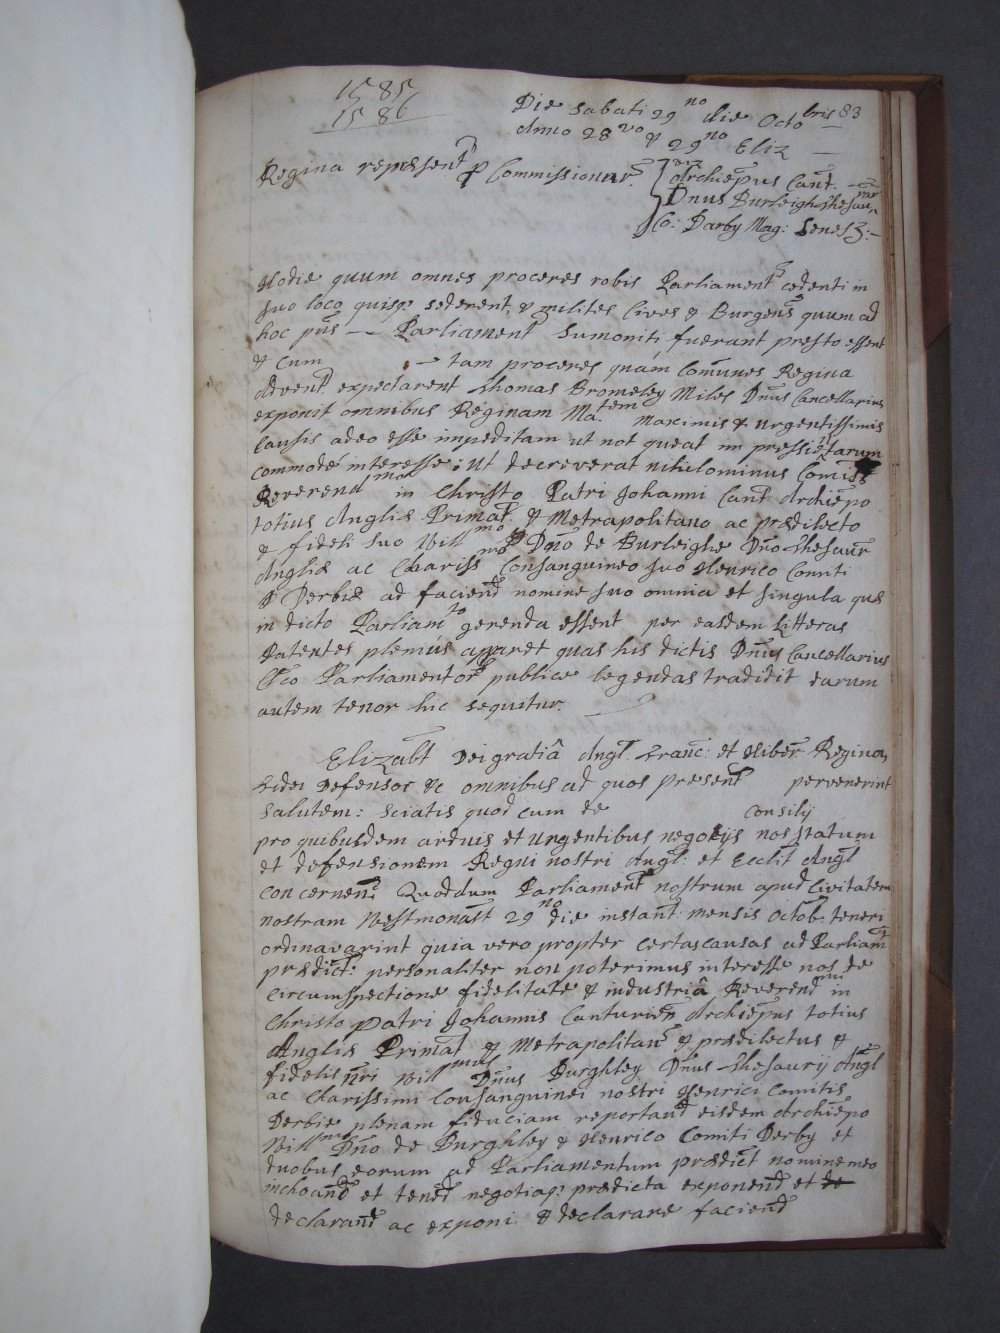 1585
1586
Die Sabati 29no die Octobris 83
Anno 28vo & 29no Eliz
Regina repræsent p Commissionar. viz
Archiepus Cant.
Dnus Burleigh Thesaur
Co: Darby Mag: Senesz:
Hodie quum omnes proceres robis Parliament cedenti in
suo loco quisq sederent, & milites Cives & Burgens quum ad
hoc pns — Parliament Sumoniti fuerant presto essent
& cum — tam proceres quám Comunes Regina
Advent expectarent Thomas Bromeley Miles Dnus Cancellarius
exponit omnibus Reginam Matem Maximis & urgentissimis
Causis adeo esse impeditam ut not queat in pressietarum
commodé interesse; ut decreverat nihilominus Comiss
Reverendmo in Christo Patri Johanni Cant Archiepo
totius Angliæ Primat & Metrapolitano ac prædilecto
& fideli suo Willmo Dno de Burleighe Dno Thesaur
Angliæ ac Charissmo Consanguineo suo Henrico Comiti
Derbiæ ad faciend nomine suo omnia et singula quæ
in dicto Parliamto gerenda essent per easdem Litteras
Patentes plenius apparet quas his dictis Dnus Cancellarius
Cl̃co Parliamentor publice legendas tradidit earum
autem tenor hic sequitur.
Elizabt Dei gratiâ Angl Franc: et Hiber Regina,
Fidei Defensor &c omnibus ad quos present pervenerint
Salutem: Sciatis quod cum de Consilij
pro quibusdem arduis et urgentibus negotijs nos statum
et defensionem Regni nostri Angl: et Ecclit Angl
concernen: Quoddum Parliament nostrum apud Civitatem
nostram Westmonast 29no die instant: mensis Octob teneri
ordinavarint quia vero propter certas causas ad Parliam
prædict: personaliter non poterimus interesse nos de
Circumspectione fidelitate & industriâ Reverendmi in
Christo Patri Johannis Canturien Archiepus totius
Angliæ Primat & Metrapolitan & prædilectus &
fidelis nri Willmus Dnus Burghley Dnus Thesaurij Angl
ac Charissimi Consanguinei nostri Henrici Comitis
Derbie plenam fiduciam reportand eisdem Archiepo
Willmo Dno de Burghley & Henrico Comiti Derby et
duobus eorum ad Parliamentum prædict nomine meo
inchoand et tened negotiaq prædicta exponend et de
declarand ac exponi & declarare faciend